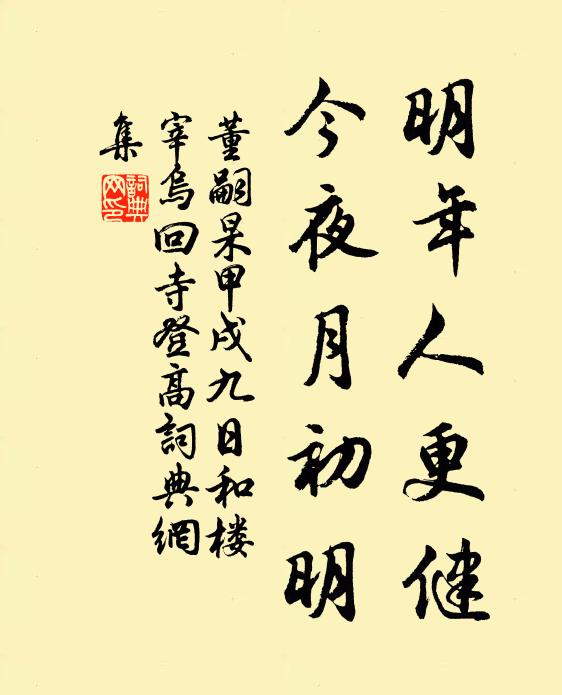 明年人更健
今夜月初明
董嗣杲甲戌九日和楼
宰乌回寺登高詞典網
集
詞典網印